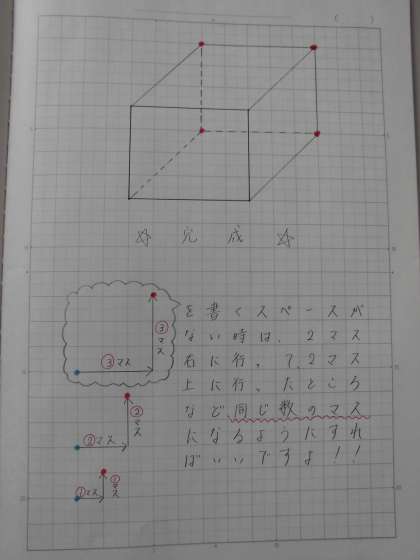 ( )
☆ 完 成 ☆
③マス
③マス
②マス
②マス
①マス
①マス
を書くスペースが
ない時は、2マス
右に行、て,2マス
上に行、たところ
など、同じ数のマス
になるようにすれ
ばいいですよ!!